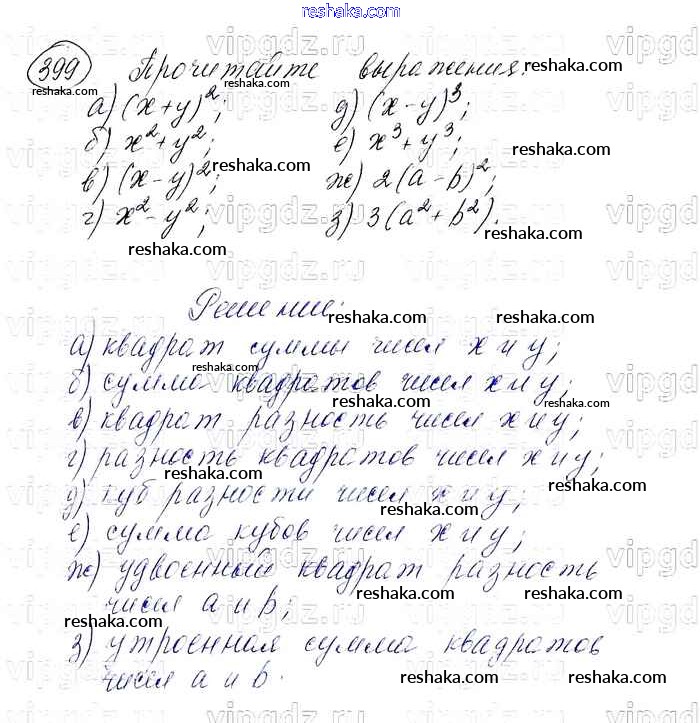 reshaka.com
399 Прочитайте выражения:
а) (x+y)²; д) (x-y)³;
б) x²+y²; е) x³+y³;
в) (x-y)²; ж) 2(a-b)²;
г) x²-y²; з) 3(a²+b²).
Решение:
а) квадрат суммы чисел x и y;
б) сумма квадратов чисел x и y;
в) квадрат разность чисел x и y;
г) разность квадратов чисел x и y;
д) куб разности чисел x и y;
е) сумма кубов чисел x и y;
ж) удвоенный квадрат разность
чисел a и b;
з) утроенная сумма квадратов
чисел a и b.